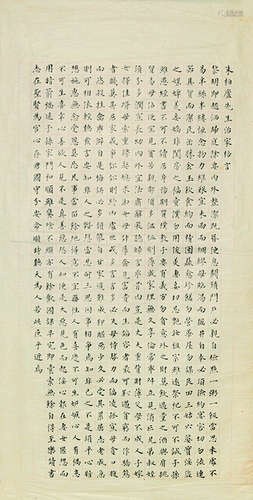 朱柏廬先生治家格言
黎明即起洒掃庭除要內外整潔既昏便息關鎖門戶必親自檢點一粥一飯當思來處不
易半絲半縷恆念物力維艱宜未雨而綢繆毋臨渴而掘井自奉必須儉約宴客切勿流連
器具質而潔瓦缶勝金玉飲食約而精園蔬愈珍饈勿營華屋勿謀良田三姑六婆實淫盜
之媒婢美妾嬌非閨房之福童僕勿用俊美妻妾切忌艷妝祖宗雖遠祭祀不可不誠子孫
雖愚經書不可不讀居身務期質樸教子要有義方勿貪意外之財莫飲過量之酒與肩挑
貿易毋佔便宜見貧苦親鄰須多溫恤刻薄成家理無久享倫常乖舛立見消亡兄弟叔姪
須多分潤寡長幼內外宜法肅辭嚴聽婦言乖骨肉豈是丈夫重資財薄父母不成人子嫁
女擇佳婿毋索重聘娶媳求淑女勿計厚奩見富貴而生諂容者最可恥遇貧窮而作驕態
者賤莫甚居家戒爭訟訟則終凶處世戒多言言多必失勿恃勢力而凌逼孤寡毋貪口腹
而恣殺牲禽乖僻自是悔誤必多頹惰自甘家道難成狎暱惡少久必受其累屈志老成急
則可相依輕聽發言安知非人之譖愬當忍耐三思因事相爭焉知非我之不是須平心暗
想施惠無念受恩莫忘凡事當留餘地得意不宜再往人有喜慶不可生妒嫉心人有禍患
不可生喜幸心善欲人見不是真善惡恐人知便是大惡見色而起淫心報在妻女匿怨而
用暗箭禍延子孫家門和順雖饔飧不繼亦有餘歡國課早完即囊橐無餘自得至樂讀書
志在聖賢為官心存君國守分安命順時聽天為人若此庶乎近焉